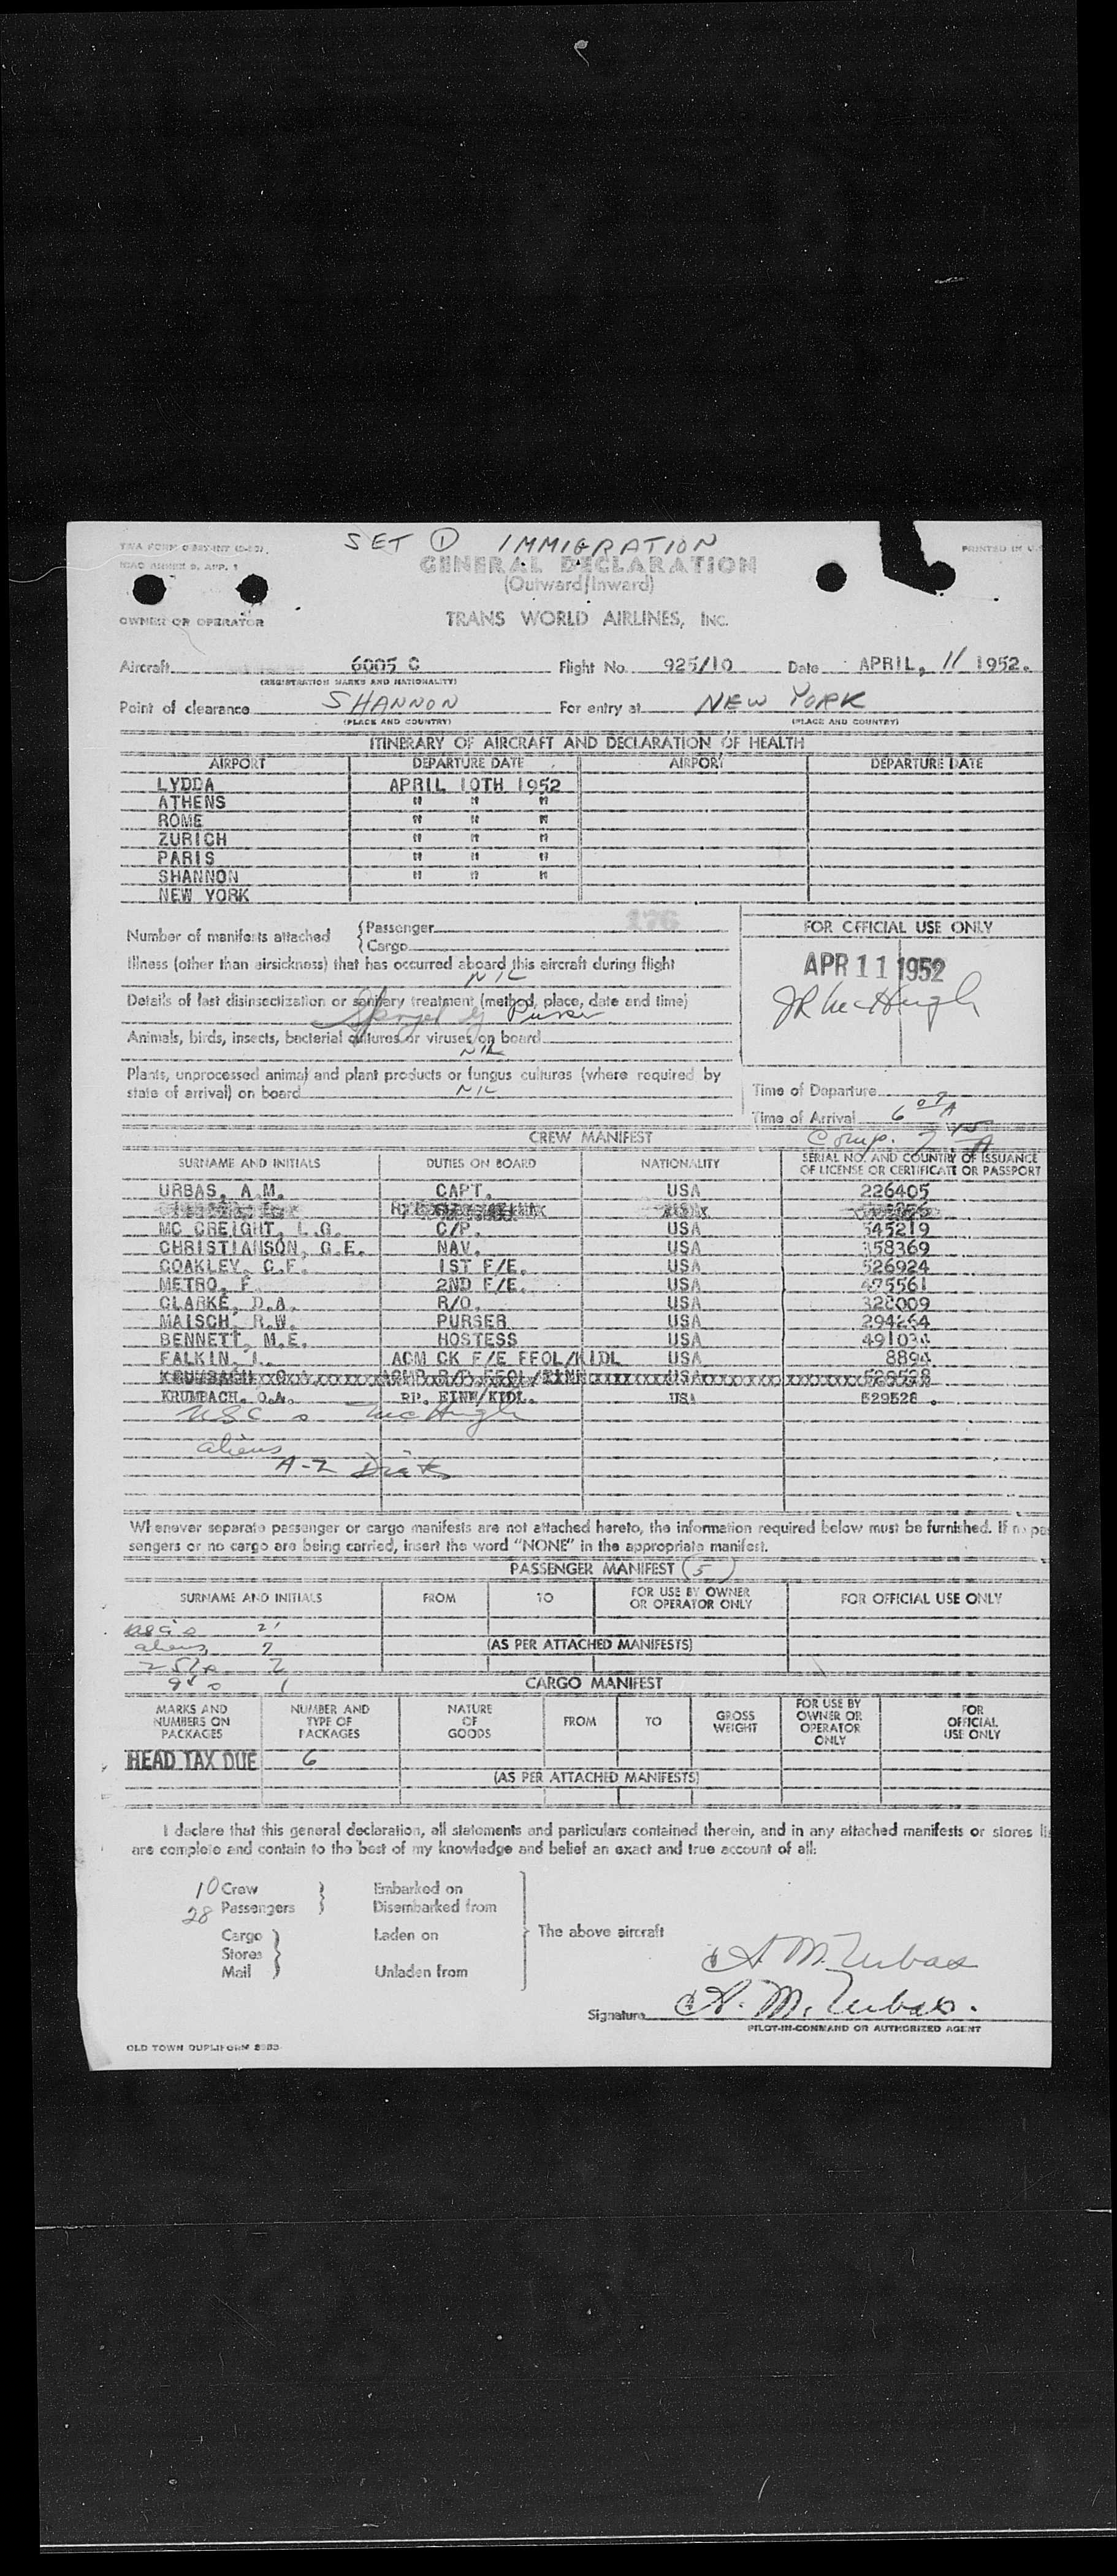 SET 1 IMMIGRATION
GENERAL DECLARATION
(Outward/Inward)
PRINTED IN U.S
OWNER OR OPERATOR TRANS WORLD AIRLINES, INC.
Aircraft 6005 C Flight No. 925/10 Date APRIL, 11 1952.
(REGISTRATION MARKS AND NATIONALITY)
Point of clearance SHANNON For entry at NEW YORK
(PLACE AND COUNTRY) (PLACE AND COUNTRY)
ITINERARY OF AIRCRAFT AND DECLARATION OF HEALTH
AIRPORT DEPARTURE DATE AIRPORT DEPARTURE DATE
LYDDA APRIL 10TH 1952
ATHENS " " "
ROME " " "
ZURICH " " "
PARIS " " "
SHANNON " " "
NEW YORK
176
Number of manifests attached { Passenger
Cargo
FOR OFFICIAL USE ONLY
Illness (other than airsickness) that has occurred aboard this aircraft during flight
NIL
APR 11 1952
Details of last disinsectization or sanitary treatment (method, place, date and time)
Sprayed by Purser
JR McHugh
Animals, birds, insects, bacterial cultures or viruses on board
NIL
Plants, unprocessed animal and plant products or fungus cultures (where required by
state of arrival) on board NIL
Time of Departure
Time of Arrival 6 09 A
Comp. 7 15 A
CREW MANIFEST
SURNAME AND INITIALS DUTIES ON BOARD NATIONALITY SERIAL NO. AND COUNTRY OF ISSUANCE
OF LICENSE OR CERTIFICATE OR PASSPORT
URBAS, A.M. CAPT. USA 226405
MC CREIGHT, L.G. C/P. USA 345219
CHRISTIANSON, G.E. NAV. USA 358369
COAKLEY, C.F. 1ST F/E. USA 526924
METRO, F. 2ND F/E. USA 475561
CLARKE, D.A. R/O. USA 328009
MAISCH, R.W. PURSER USA 294264
BENNETT, M.E. HOSTESS USA 491034
FALKIN, I. ACM CK F/E FFOL/KIDL USA 8894
KRUMBACH, O.A. USA 529528
KRUMBACH, O.A. RP. EINN/KIDL. USA 529528 .
USC s McHugh
aliens
A-Z
Whenever separate passenger or cargo manifests are not attached hereto, the information required below must be furnished. If no pas
sengers or no cargo are being carried, insert the word "NONE" in the appropriate manifest.
PASSENGER MANIFEST (5)
SURNAME AND INITIALS FROM TO FOR USE BY OWNER
OR OPERATOR ONLY FOR OFFICIAL USE ONLY
USC's 21
aliens 7
(AS PER ATTACHED MANIFESTS)
CARGO MANIFEST
MARKS AND
NUMBERS ON
PACKAGES NUMBER AND
TYPE OF
PACKAGES NATURE
OF
GOODS FROM TO GROSS
WEIGHT FOR USE BY
OWNER OR
OPERATOR
ONLY FOR
OFFICIAL
USE ONLY
HEAD TAX DUE 6
(AS PER ATTACHED MANIFESTS)
I declare that this general declaration, all statements and particulars contained therein, and in any attached manifests or stores lis
are complete and contain to the best of my knowledge and belief an exact and true account of all:
10 Crew } Embarked on
28 Passengers Disembarked from
Cargo } Laden on The above aircraft
Stores
Mail Unladen from
A. M. Urbas
Signature A. M. Urbas.
PILOT-IN-COMMAND OR AUTHORIZED AGENT
OLD TOWN DUPLIFORM